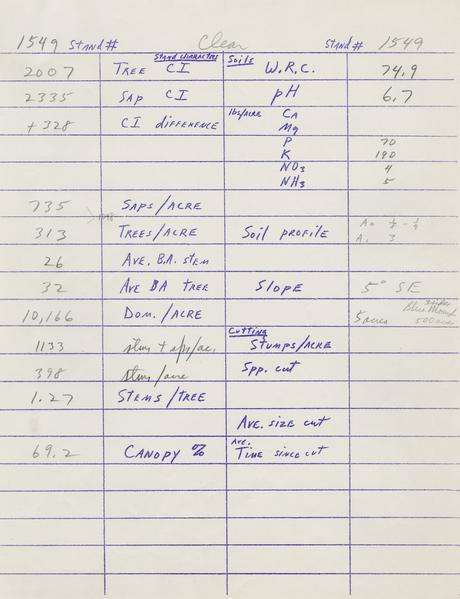 1549 STAND # Clear STAND # 1549
STAND CHARACTERS Soils
2007 TREE CI W.R.C. 74.9
2335 SAP CI pH 6.7
+ 328 CI DIFFERENCE lbs/ACRE CA
Mg
P 70
K 190
NO3 4
NH3 5
735 SAPS/ACRE
313 TREES/ACRE Soil PROFILE
A1 3
26 AVE. B.A. STEM
32 AVE BA TREE SLOPE 5° SE
10,166 DOM./ACRE 5 acres Blue Mound 500 acres
CUTTING
1133 stems + sps/ac. STUMPS/ACRE
398 stems/acre Spp. cut
1.27 STEMS/TREE
AVE. SIZE CUT
69.2 CANOPY % AVE. TIME SINCE CUT